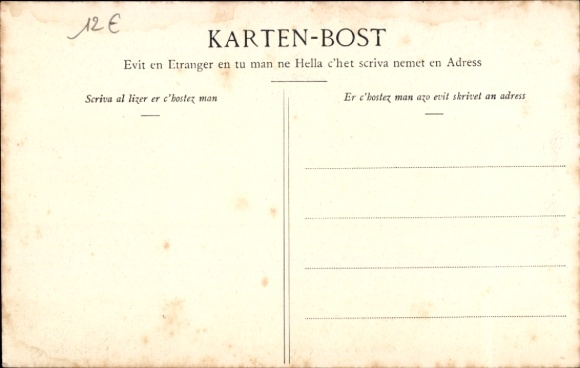 12 €
KARTEN-BOST
Evit en Etranger en tu man ne Hella c'het scriva nemet en Adress
Scriva al lizer er c'hostez man
Er c'hostez man azo evit skrivet an adress